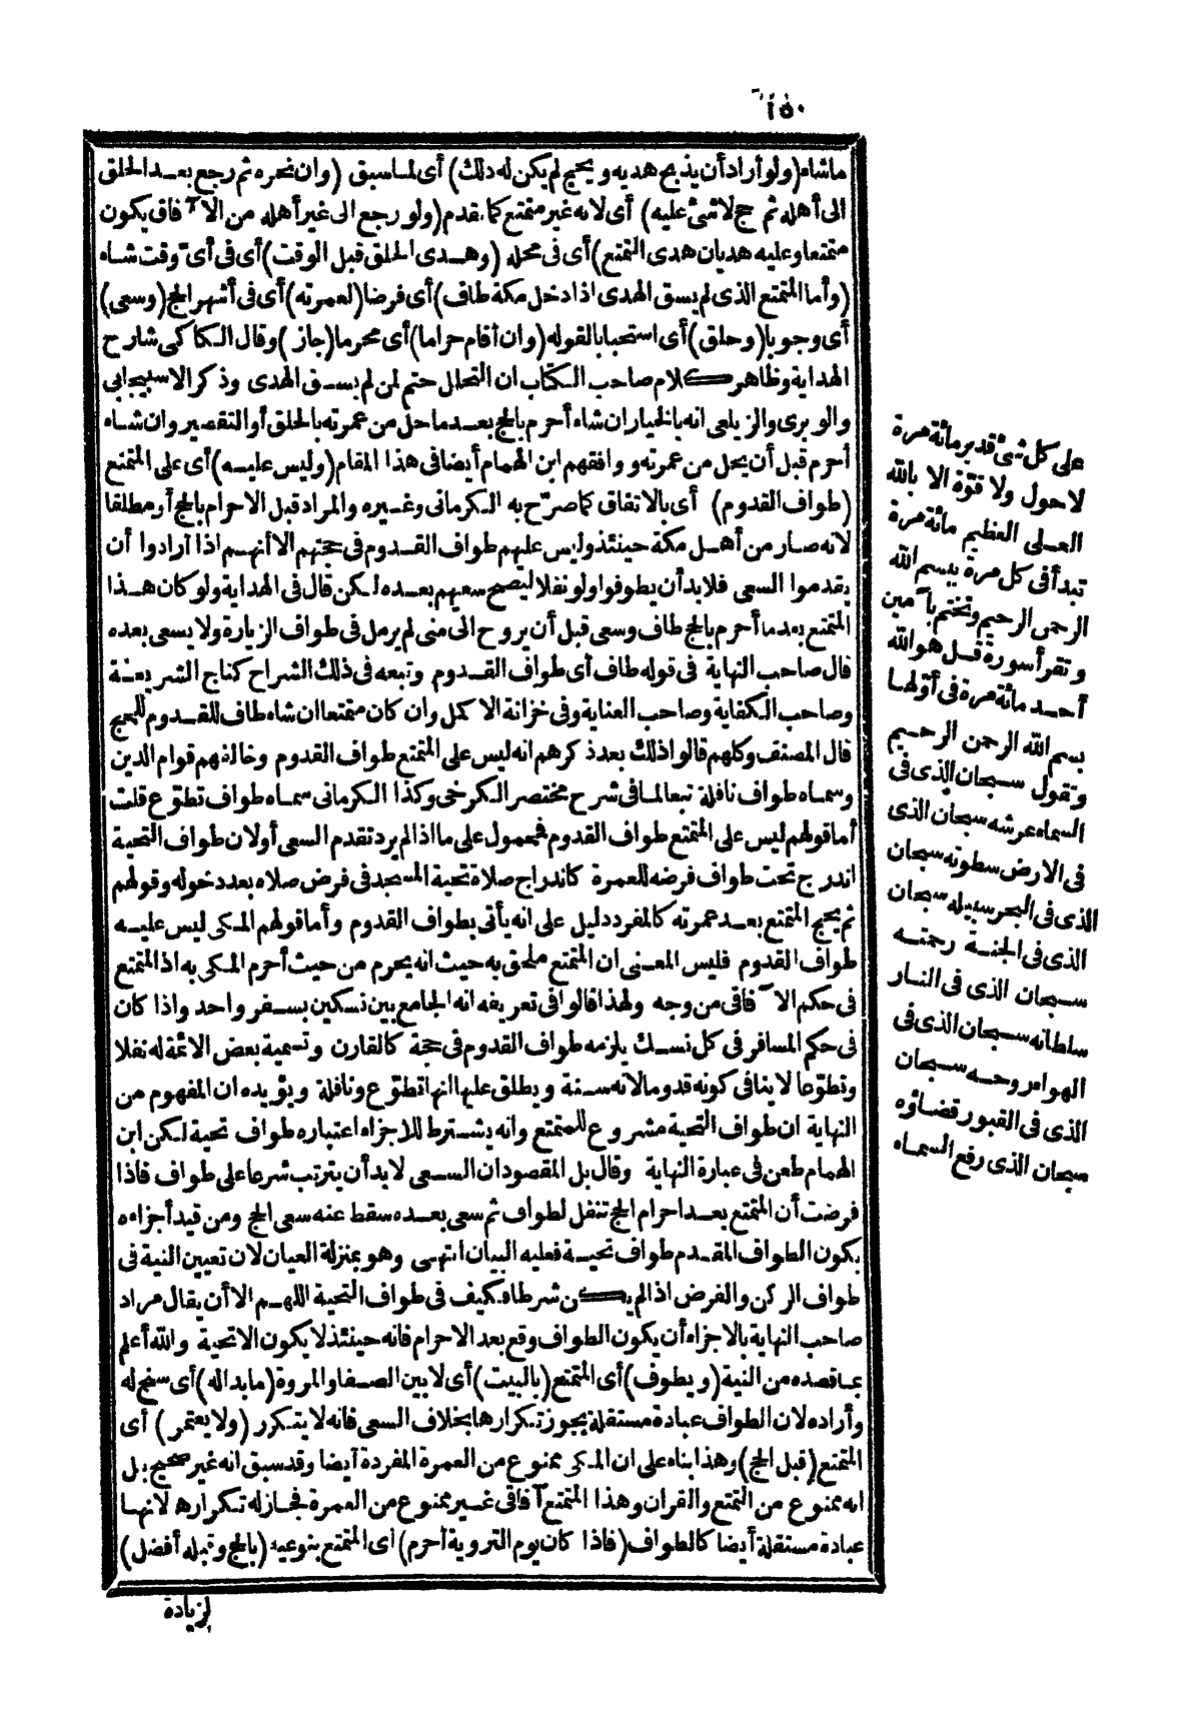 ١٥٠
ماشاء (ولو أراد أن يذبح هديه ويحج لم يكن له ذلك) أى لما سبق (وان نحره ثم رجع بعد الحلق
الى أهله ثم حج لا شئ عليه) أى لانه غير متمتع كما تقدم (ولو رجع الى غير أهله من الآفاق يكون
متمتعا وعليه هديان هدى التمتع) أى فى محله (وهدى الحلق قبل الوقت) أى فى أىّ وقت شاء
(وأما المتمتع الذى لم يسق الهدى اذا دخل مكة طاف) أى فرضا (لعمرته) أى فى أشهر الحج (وسعى)
أى وجوبا (وحلق) أى استحبابا لقوله (وان أقام حراما) أى محرما (جاز) وقال الكاكى شارح
الهداية وظاهر كلام صاحب الكتاب ان التحلل حتم لمن لم يسق الهدى وذكر الاسبيجابى
والوبرى والزيلعى انه بالخيار ان شاء أحرم بالحج بعد ما حل من عمرته بالحلق أو التقصير وان شاء
أحرم قبل أن يحل من عمرته ووافقهم ابن الهمام أيضا فى هذا المقام (وليس عليه) أى على المتمتع
(طواف القدوم) أى بالاتفاق كما صرّح به الكرمانى وغيره والمراد قبل الاحرام بالحج أو مطلقا
لانه صار من أهل مكة حينئذ وليس عليهم طواف القدوم فى حجتهم الا أنهم اذا أرادوا أن
يقدموا السعى فلا بد أن يطوفوا ولو نفلا ليصح سعيهم بعده لكن قال فى الهداية ولو كان هذا
المتمتع بعد ما أحرم بالحج طاف وسعى قبل أن يروح الى منى لم يرمل فى طواف الزيارة ولا يسعى بعده
قال صاحب النهاية فى قوله طاف أى طواف القدوم وتبعه فى ذلك الشراح كتاج الشريعة
وصاحب الكفاية وصاحب العناية وفى خزانة الاكمل وان كان متمتعا ان شاء طاف للقدوم للحج
قال المصنف وكلهم قالوا ذلك بعد ذكرهم انه ليس على المتمتع طواف القدوم وخالفهم قوام الدين
وسماه طواف نافلة تبعا لما فى شرح مختصر الكرخى وكذا الكرمانى سماه طواف تطوّع قلت
أما قولهم ليس على المتمتع طواف القدوم فمحمول على ما اذا لم يرد تقدم السعى أولان طواف التحية
اندرج تحت طواف فرضه للعمرة كاندراج صلاة تحية المسجد فى فرض صلاه بعد دخوله وقولهم
ثم يحج المتمتع بعد عمرته كالمفرد دليل على انه يأتى بطواف القدوم وأما قولهم المكى ليس عليه
طواف القدوم فليس المعنى ان المتمتع ملحق به حيث انه يحرم من حيث أحرم المكى به اذ المتمتع
فى حكم الآفاقى من وجه ولهذا قالوا فى تعريفه انه الجامع بين نسكين بسفر واحد واذا كان
فى حكم المسافر فى كل نسك يلزمه طواف القدوم فى حجة كالقارن وتسمية بعض الائمة له نفلا
وتطوّعا لا ينافى كونه قدوما لانه سنة ويطلق عليها انها تطوّع ونافلة ويؤيده ان المفهوم من
النهاية ان طواف التحية مشروع للمتمتع وانه يشترط للاجزاء اعتباره طواف تحية لكن ابن
الهمام طعن فى عبارة النهاية وقال بل المقصود ان السعى لا بد أن يترتب شرعا على طواف فاذا
فرضت أن المتمتع بعد احرام الحج تنفل لطواف ثم سعى بعده سقط عنه سعى الحج ومن قيد أجزاءه
بكون الطواف المقدم طواف تحية فعليه البيان انتهى وهو بمنزلة العيان لان تعيين النية فى
طواف الركن والفرض اذا لم يكن شرطا فكيف فى طواف التحية اللهم الا أن يقال مراد
صاحب النهاية بالاجزاء أن يكون الطواف وقع بعد الاحرام فانه حينئذ لا يكون الا تحية والله أعلم
بما قصده من النية (ويطوف) أى المتمتع (بالبيت) أى لا بين الصفا والمروة (ما بدا له) أى سنح له
وأراده لان الطواف عبادة مستقلة يجوز تكرارها بخلاف السعى فانه لا يتكرر (ولا يعتمر) أى
المتمتع (قبل الحج) وهذا بناء على ان المكى ممنوع من العمرة المفردة أيضا وقد سبق انه غير صحيح بل
انه ممنوع من التمتع والقران وهذا المتمتع آفاقى غير ممنوع من العمرة فجاز له تكرارها لانها
عبادة مستقلة أيضا كالطواف (فاذا كان يوم التروية أحرم) أى المتمتع بنوعيه (بالحج وقبله أفضل)
لزيادة
على كل شئ قدير مائة مرة
لا حول ولا قوّة الا بالله
العلى العظيم مائة مرة
تبدأ فى كل مرة ببسم الله
الرحمن الرحيم وتختم بآمين
وتقرأ سورة قل هو الله
أحد مائة مرة فى أولها
بسم الله الرحمن الرحيم
وتقول سبحان الذى فى
السماء عرشه سبحان الذى
فى الارض سطوته سبحان
الذى فى البحر سبيله سبحان
الذى فى الجنة رحمته
سبحان الذى فى النار
سلطانه سبحان الذى فى
الهواء روحه سبحان
الذى فى القبور قضاؤه
سبحان الذى رفع السماء